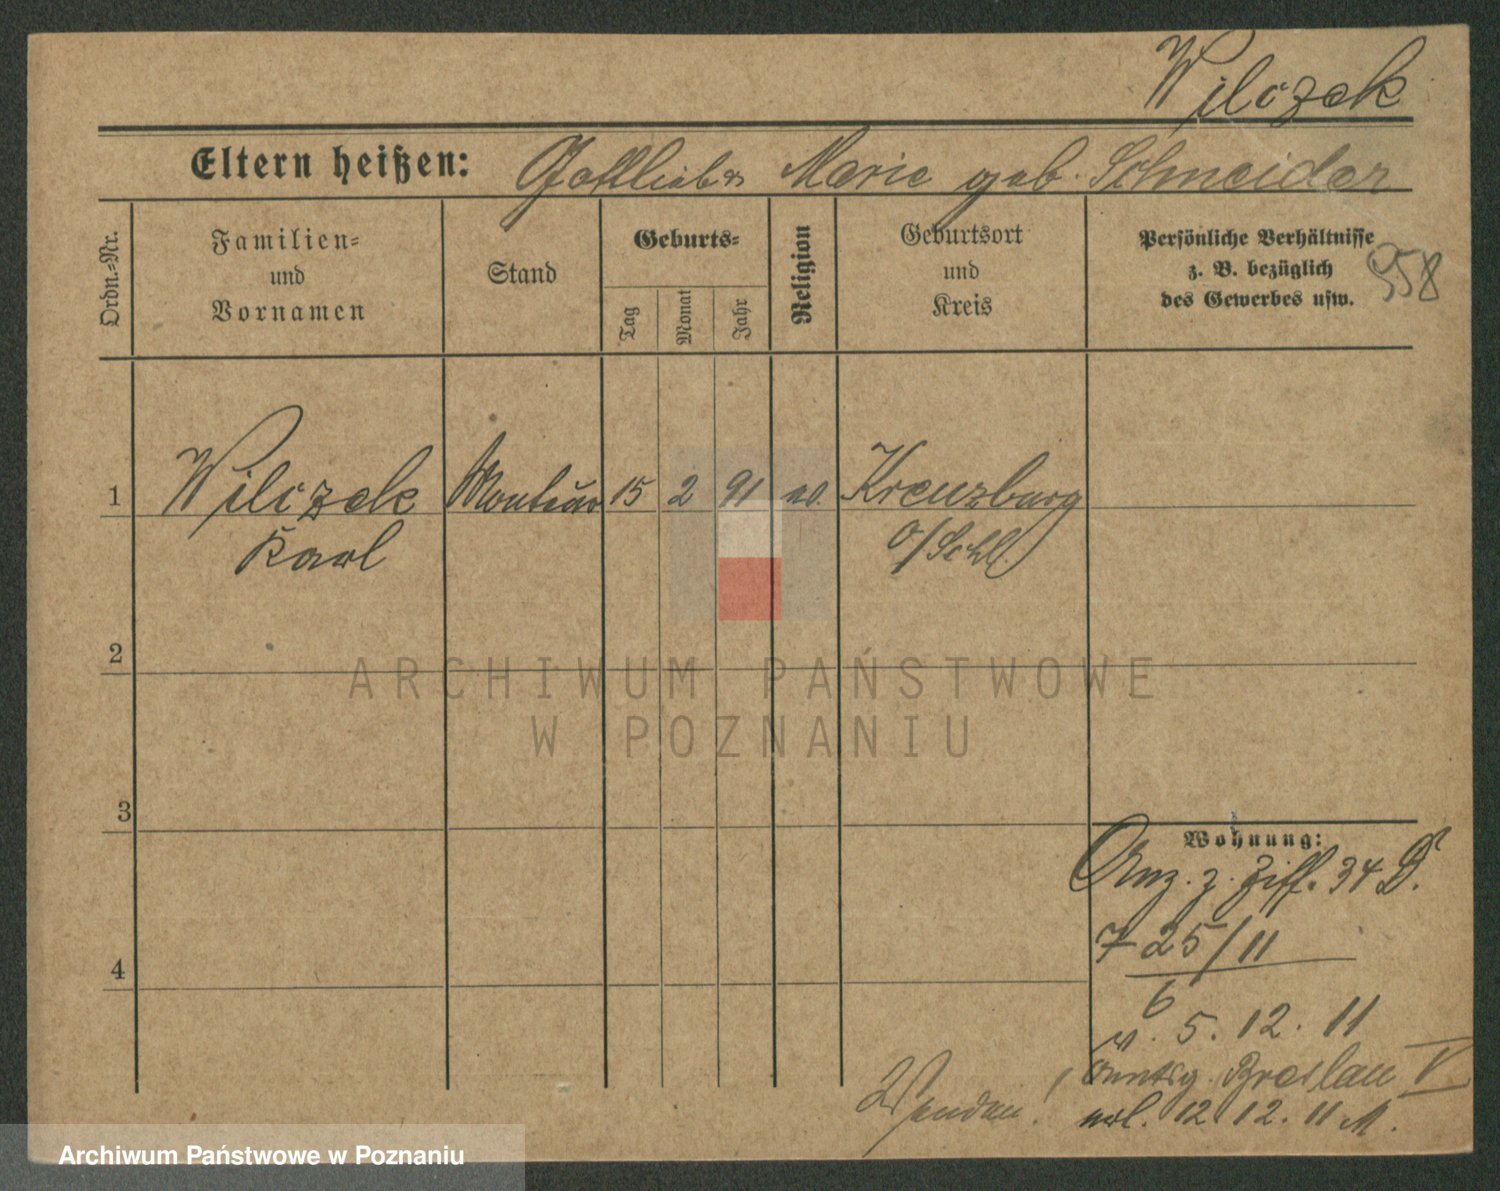 Wilczek
Eltern heißen: Gottlieb u. Marie geb. Schneider
Ordn.-Nr.
Familien-
und
Vornamen
Stand
Geburts-
Tag
Monat
Jahr
Religion
Geburtsort
und
Kreis
Persönliche Verhältnisse
z. B. bezüglich
des Gewerbes usw.
958
1 Wilczek Monteur 15 2 91 ev. Kreuzburg
Karl O/Schl.
2
3
4
ARCHIWUM PAŃSTWOWE
W POZNANIU
Wohnung:
Anz. z. Ziff. 34 D.
7 25/11
6
v. 5. 12. 11
Amtsg. Breslau V
erl. 12. 12. 11 M.
Wenden!
Archiwum Państwowe w Poznaniu